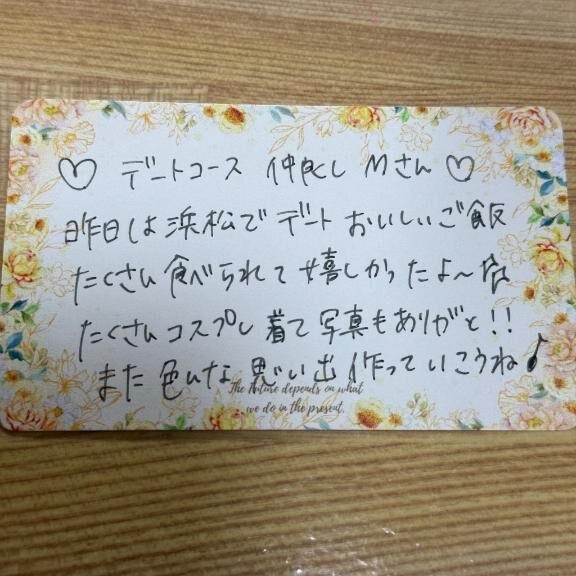 ♡ デートコース 仲良し Mさん ♡
昨日は浜松でデート おいしいご飯
たくさん食べられて嬉しかったよ〜
たくさんコスプレ着て写真もありがと!!
また色んな思い出作っていこうね♪
The future depends on what
we do in the present.